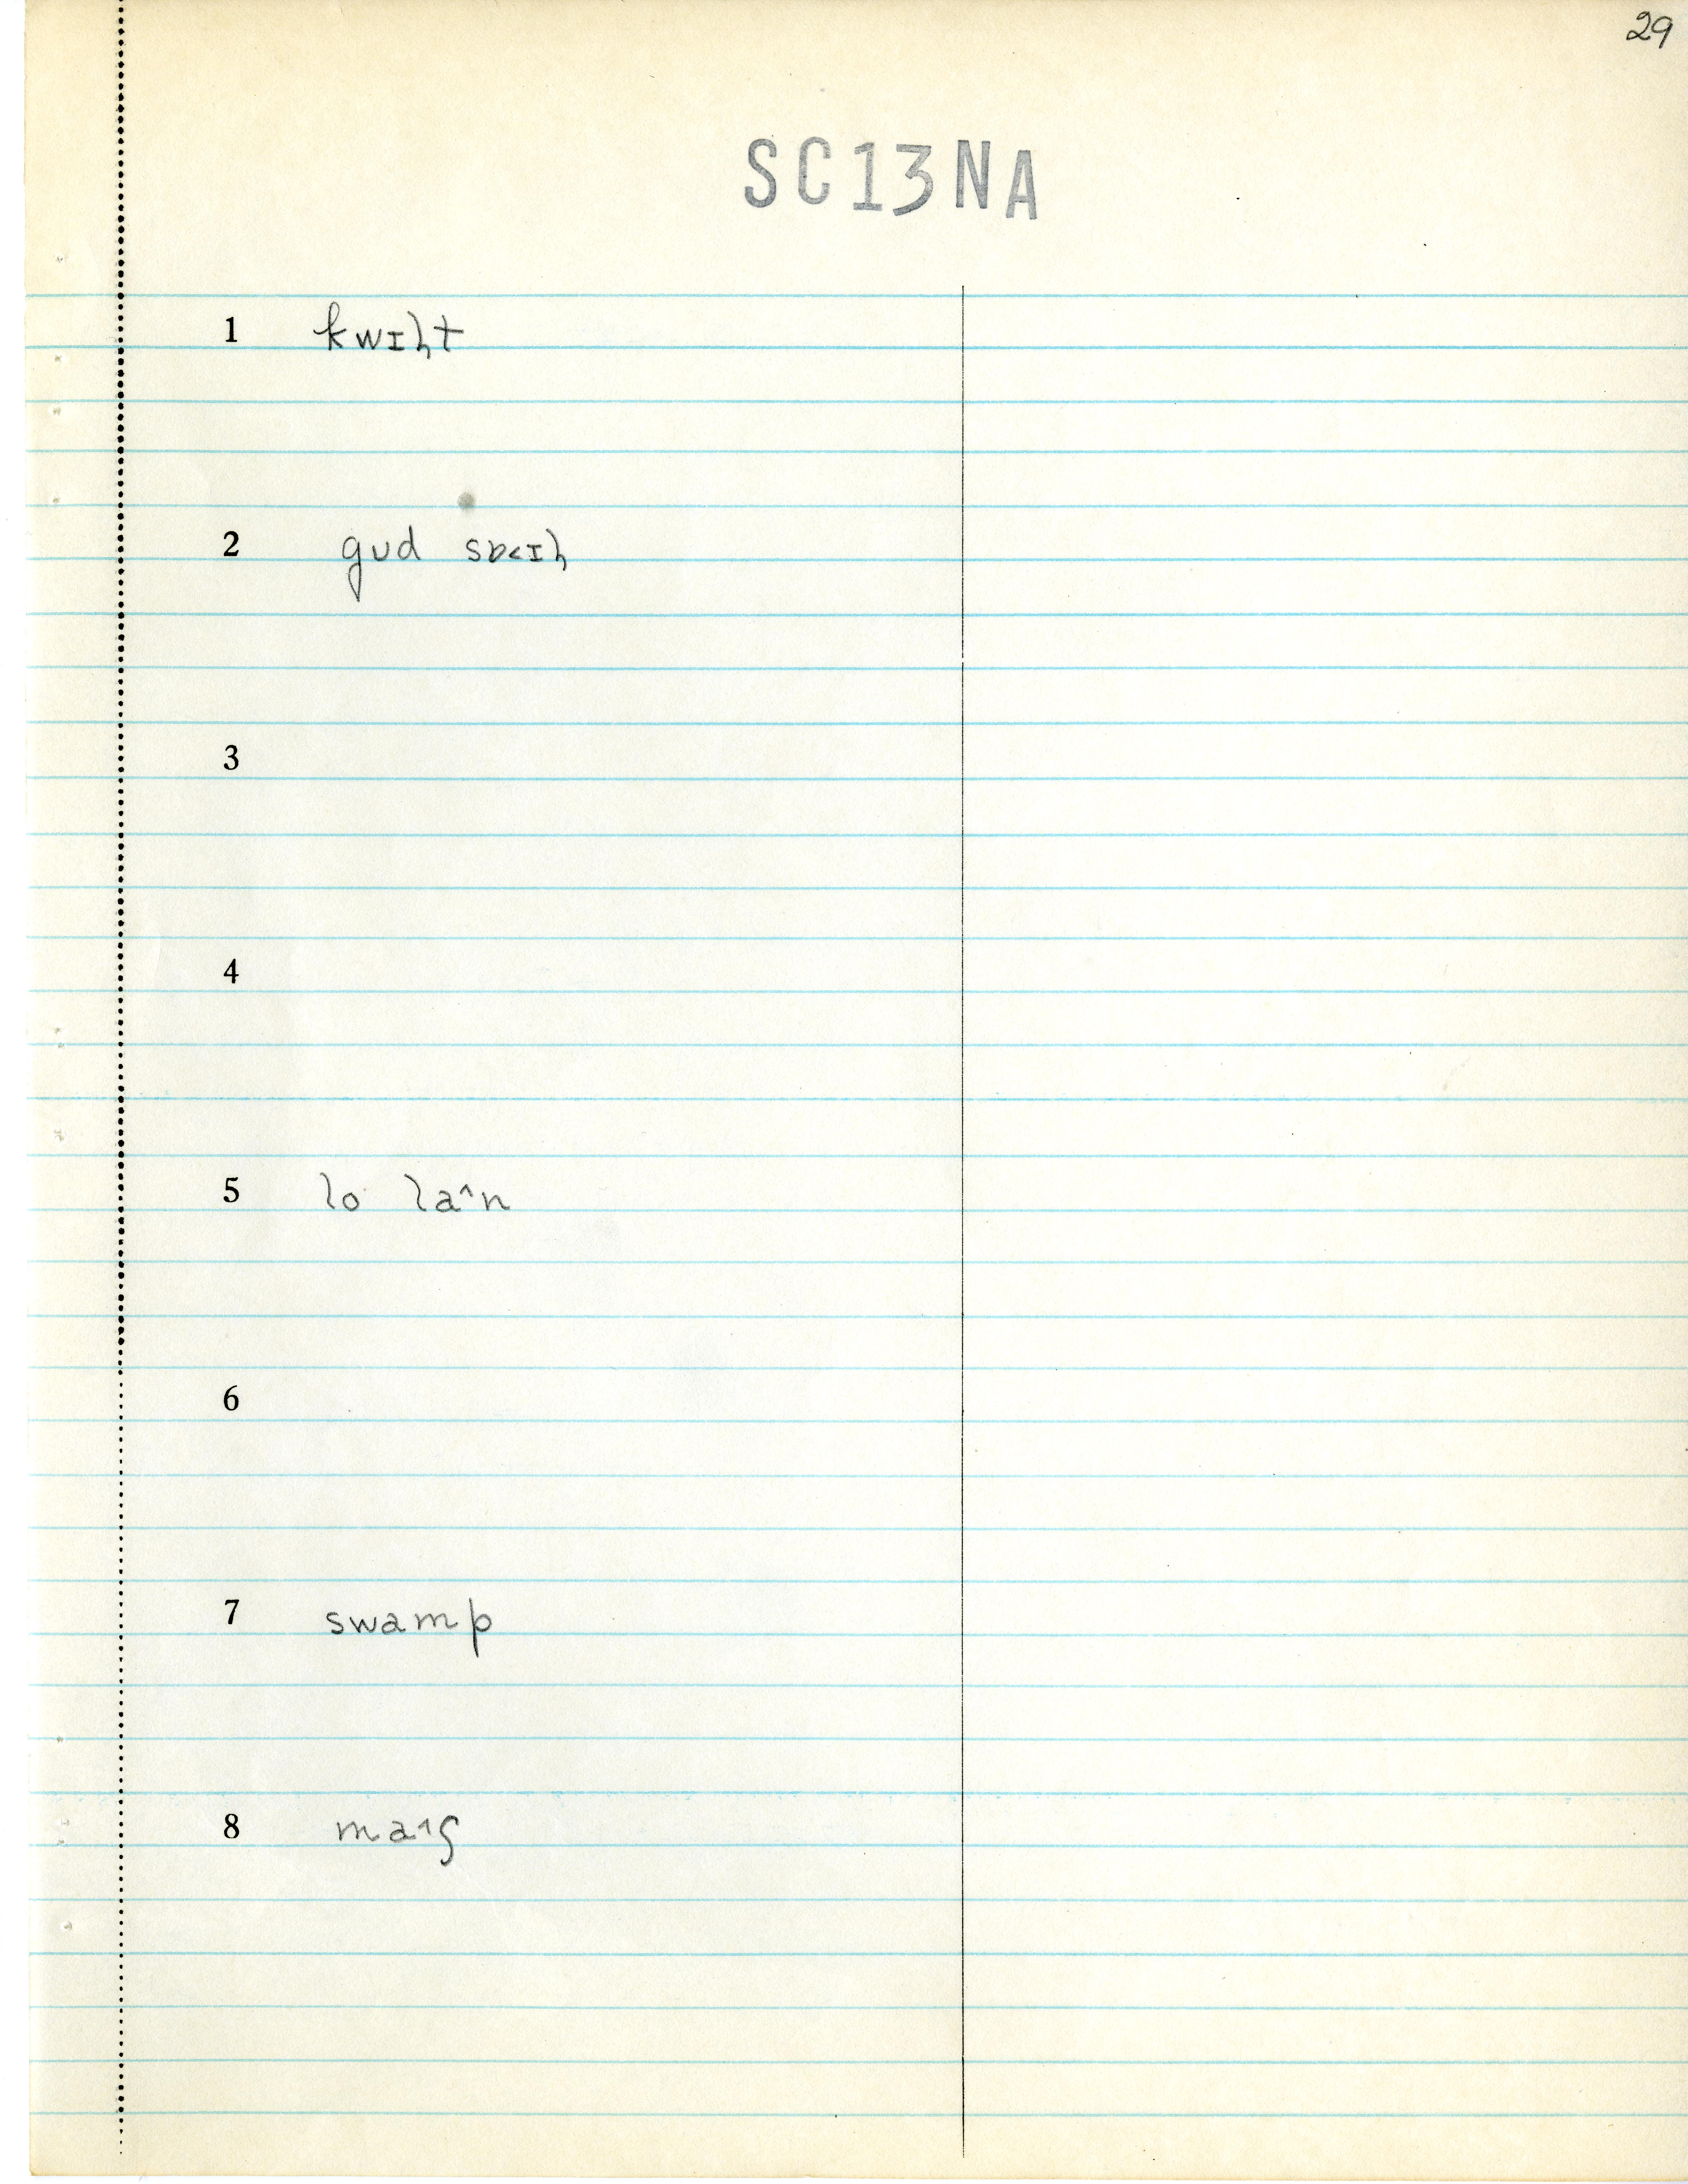 29
SC13NA
1 kwɪɫt
2 gud sɒ<ɪɫ
3
4
5 lo· la^n
6
7 swamp
8 ma^ʃ